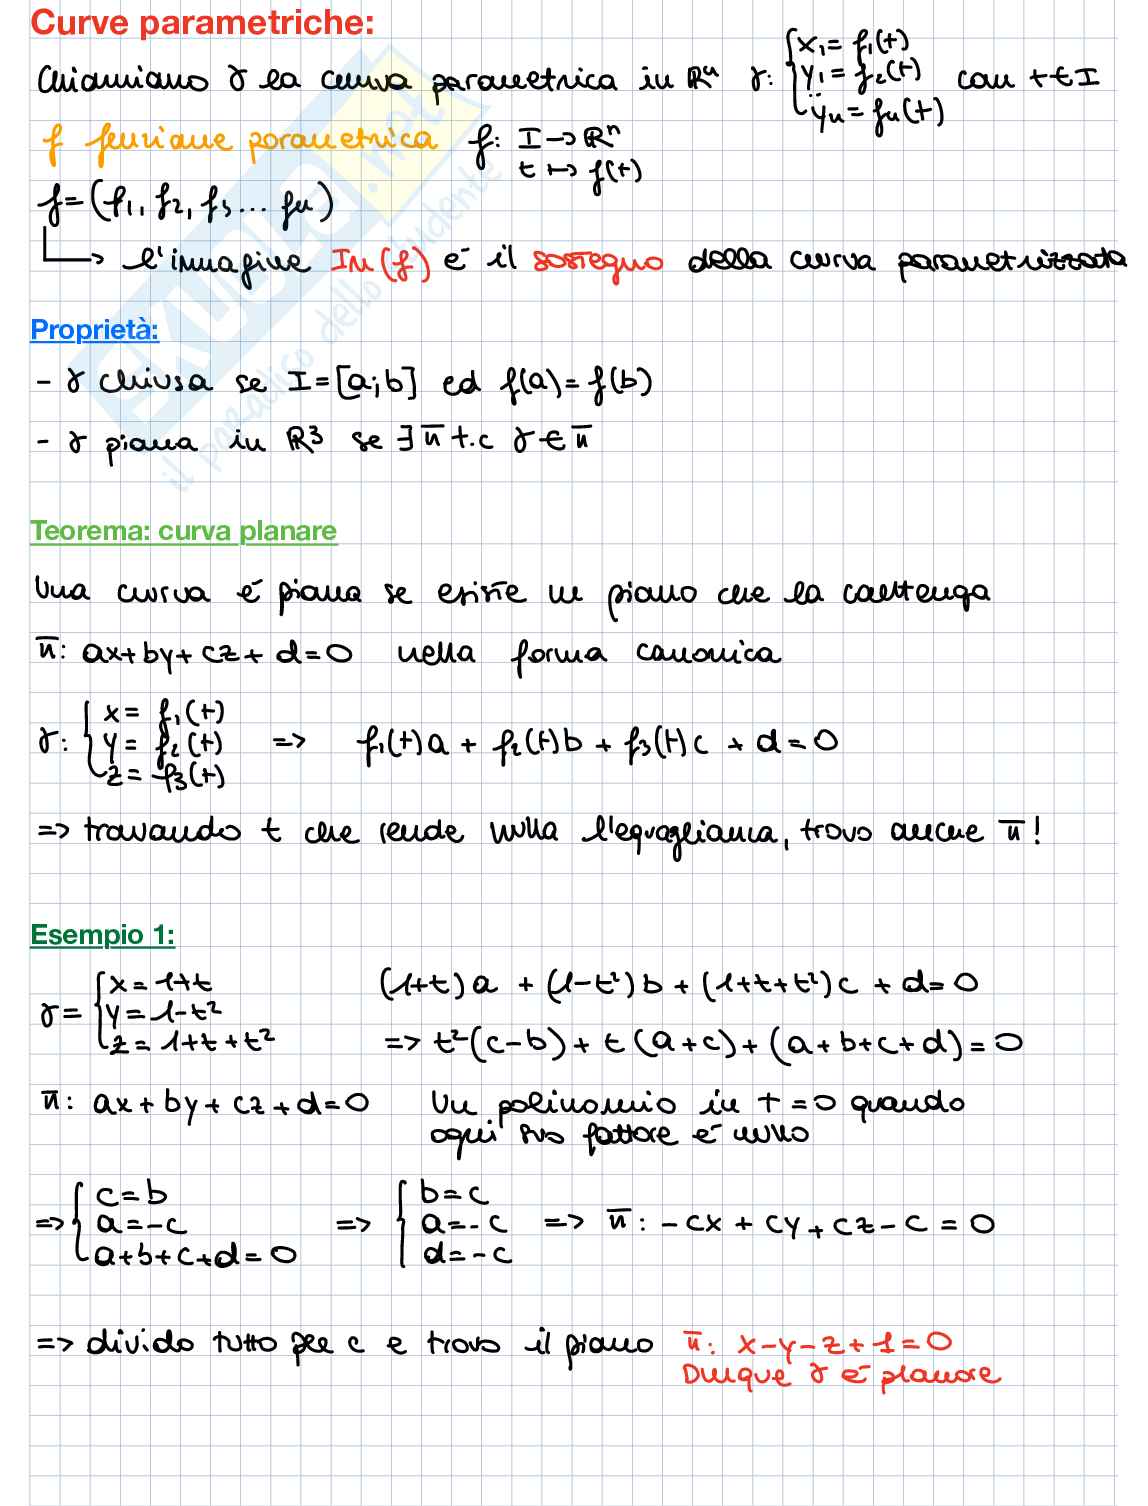 Curve parametriche:
Chiamiamo γ la curva parametrica in ℝⁿ γ: { x₁ = f₁(t)
y₁ = f₂(t) con t ∈ I
ÿₙ = fₙ(t)
f funzione parametrica f: I → ℝⁿ
t ↦ f(t)
f = (f₁, f₂, f₃ ... fₙ)
↳ l'immagine Im(f) è il sostegno della curva parametrizzata
Proprietà:
- γ chiusa se I = [a;b] ed f(a) = f(b)
- γ piana in ℝ³ se ∃ π t.c γ ∈ π
Teorema: curva planare
Una curva è piana se esiste un piano che la contenga
π: ax + by + cz + d = 0 nella forma canonica
γ: { x = f₁(t)
y = f₂(t) => f₁(t)a + f₂(t)b + f₃(t)c + d = 0
z = f₃(t)
=> trovando t che rende nulla l'eguaglianza, trovo anche π!
Esempio 1:
γ = { x = 1+t (1+t)a + (1-t²)b + (1+t+t²)c + d = 0
y = 1-t²
z = 1+t+t² => t²(c-b) + t(a+c) + (a+b+c+d) = 0
π: ax + by + cz + d = 0 Un polinomio in t = 0 quando
ogni suo fattore è nullo
=> { c = b => { b = c
a = -c a = -c => π: -cx + cy + cz - c = 0
a+b+c+d = 0 d = -c
=> divido tutto per c e trovo il piano π: x-y-z+1=0
Dunque γ è planare
SKUOLA.net
il paradiso dello studente